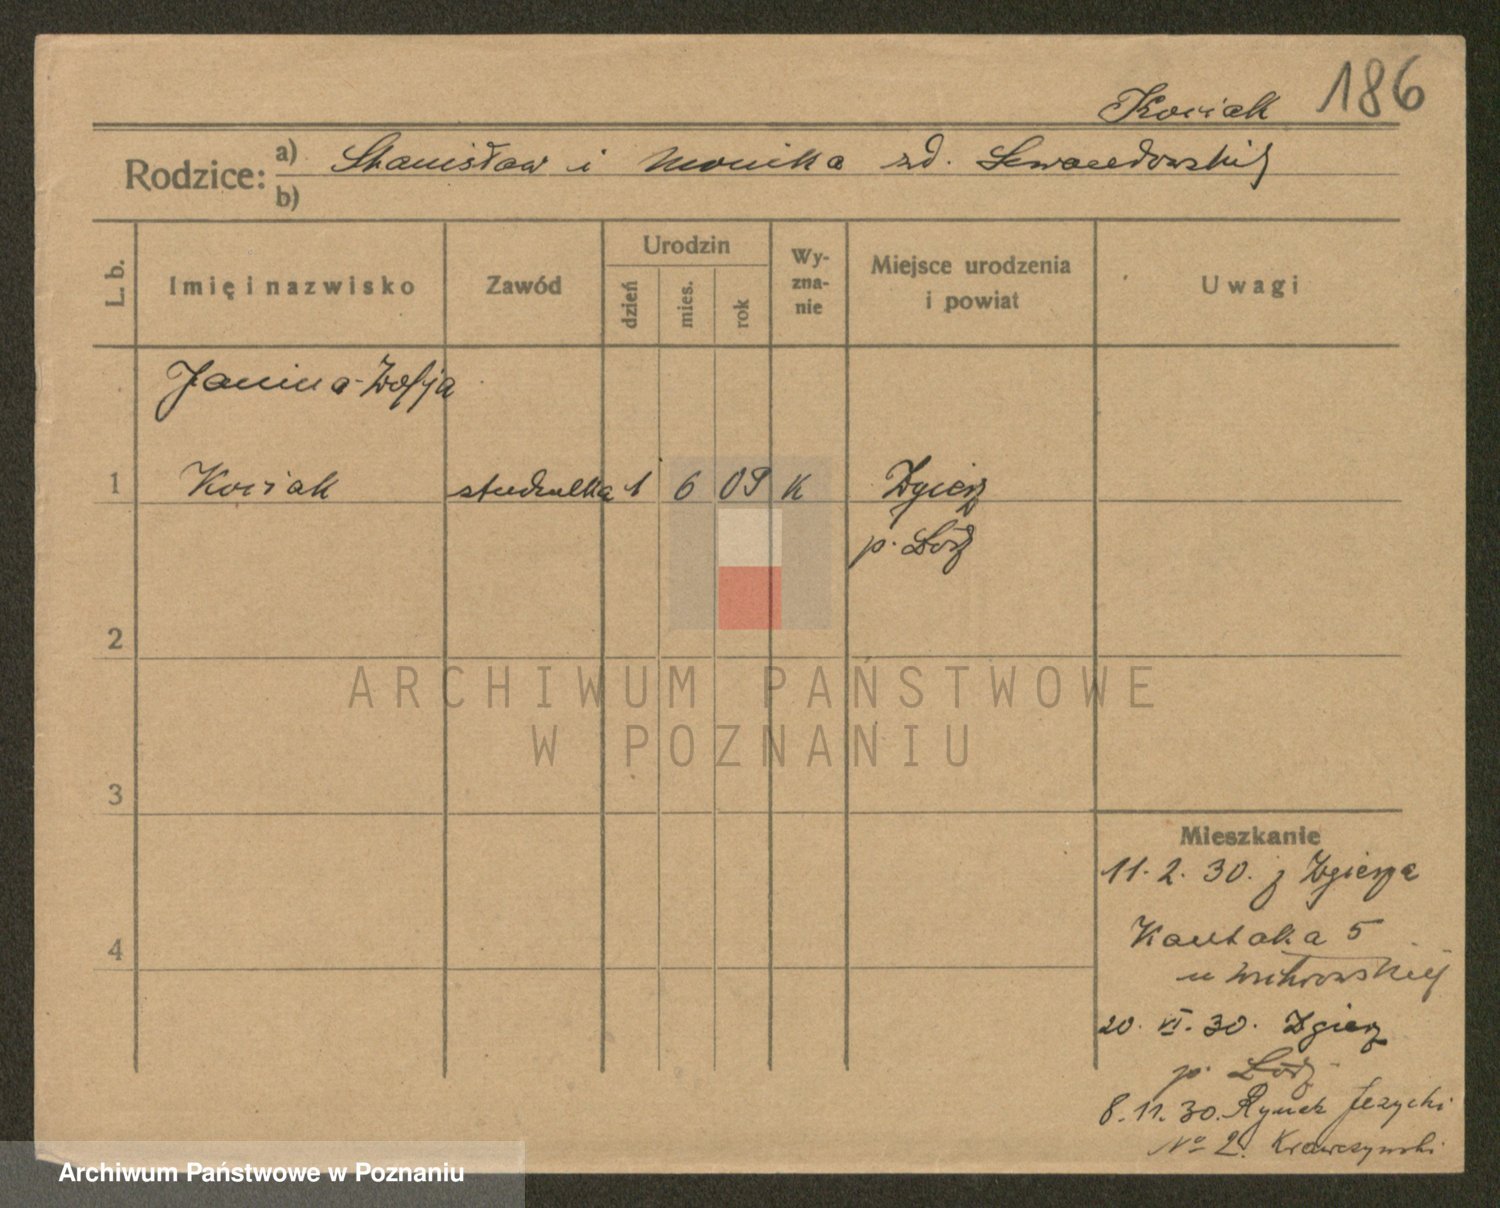 Kociak 186
Rodzice: a) Stanisław i Monika zd.
b)
L. b. Imię i nazwisko Zawód Urodzin dzień mies. rok Wy- zna- nie Miejsce urodzenia i powiat Uwagi
Janina-Zofja
1 Kociak studentka 1 6 09 K Zgierz
p. Łódź
2
ARCHIWUM PAŃSTWOWE
W POZNANIU
3
Mieszkanie
11. 2. 30. z Zgierza
4
Kantaka 5
u
20. VI. 30. Zgierz
p. Łódź
8. 11. 30. Rynek Jeżycki
No 2. Krawczyński
Archiwum Państwowe w Poznaniu